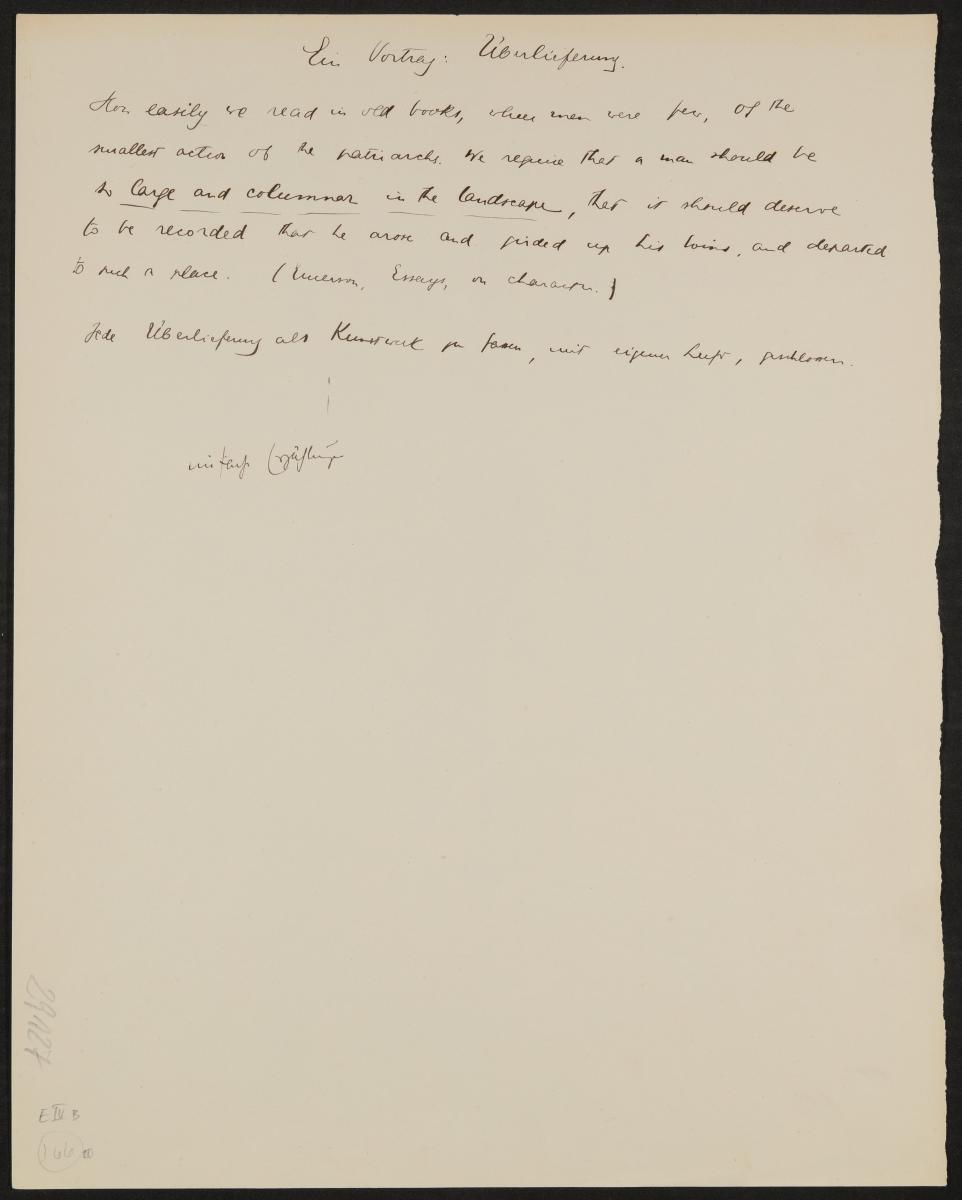 Ein Vortrag: Überlieferung.
How easily we read in old books, when men were few, of the
smallest action of the patriarchs. We require that a man should be
so large and columnar in the landscape, that it should deserve
to be recorded that he arose and girded up his loins, and departed
to such a place. (Emerson, Essays, on character.)
Jede Überlieferung als Kunstwerk zu fassen, mit eigener Luft, geschlossen.
E IV B
166